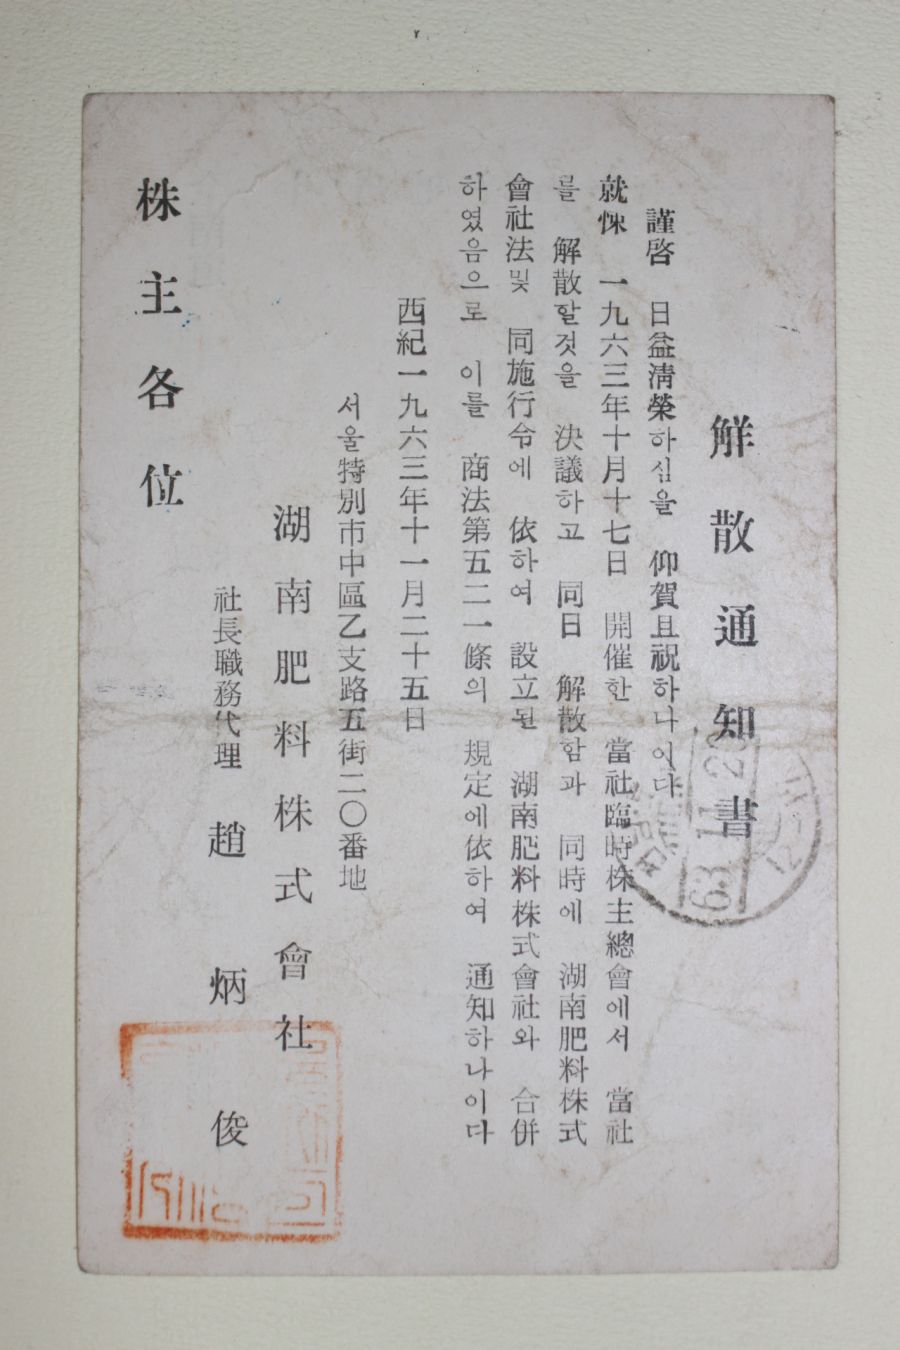 解散通知書
謹啓 日益淸榮하심을 仰賀且祝하나이다
就悚 一九六三年十月十七日 開催한 當社臨時株主總會에서 當社
를 解散할것을 決議하고 同日 解散함과 同時에 湖南肥料株式
會社法및 同施行令에 依하여 設立된 湖南肥料株式會社와 合併
하였음으로 이를 商法第五二一條의 規定에依하여 通知하나이다
西紀一九六三年十一月二十五日
서울特別市中區乙支路五街二〇番地
湖南肥料株式會社
社長職務代理 趙炳俊
株主各位
63.11.28